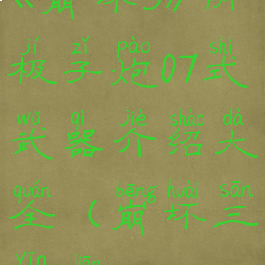 极子炮07式
jí zǐ pào shì
武器介绍大
wǔ qì jiè shào dà
全（崩坏三
quán bēng huài sān